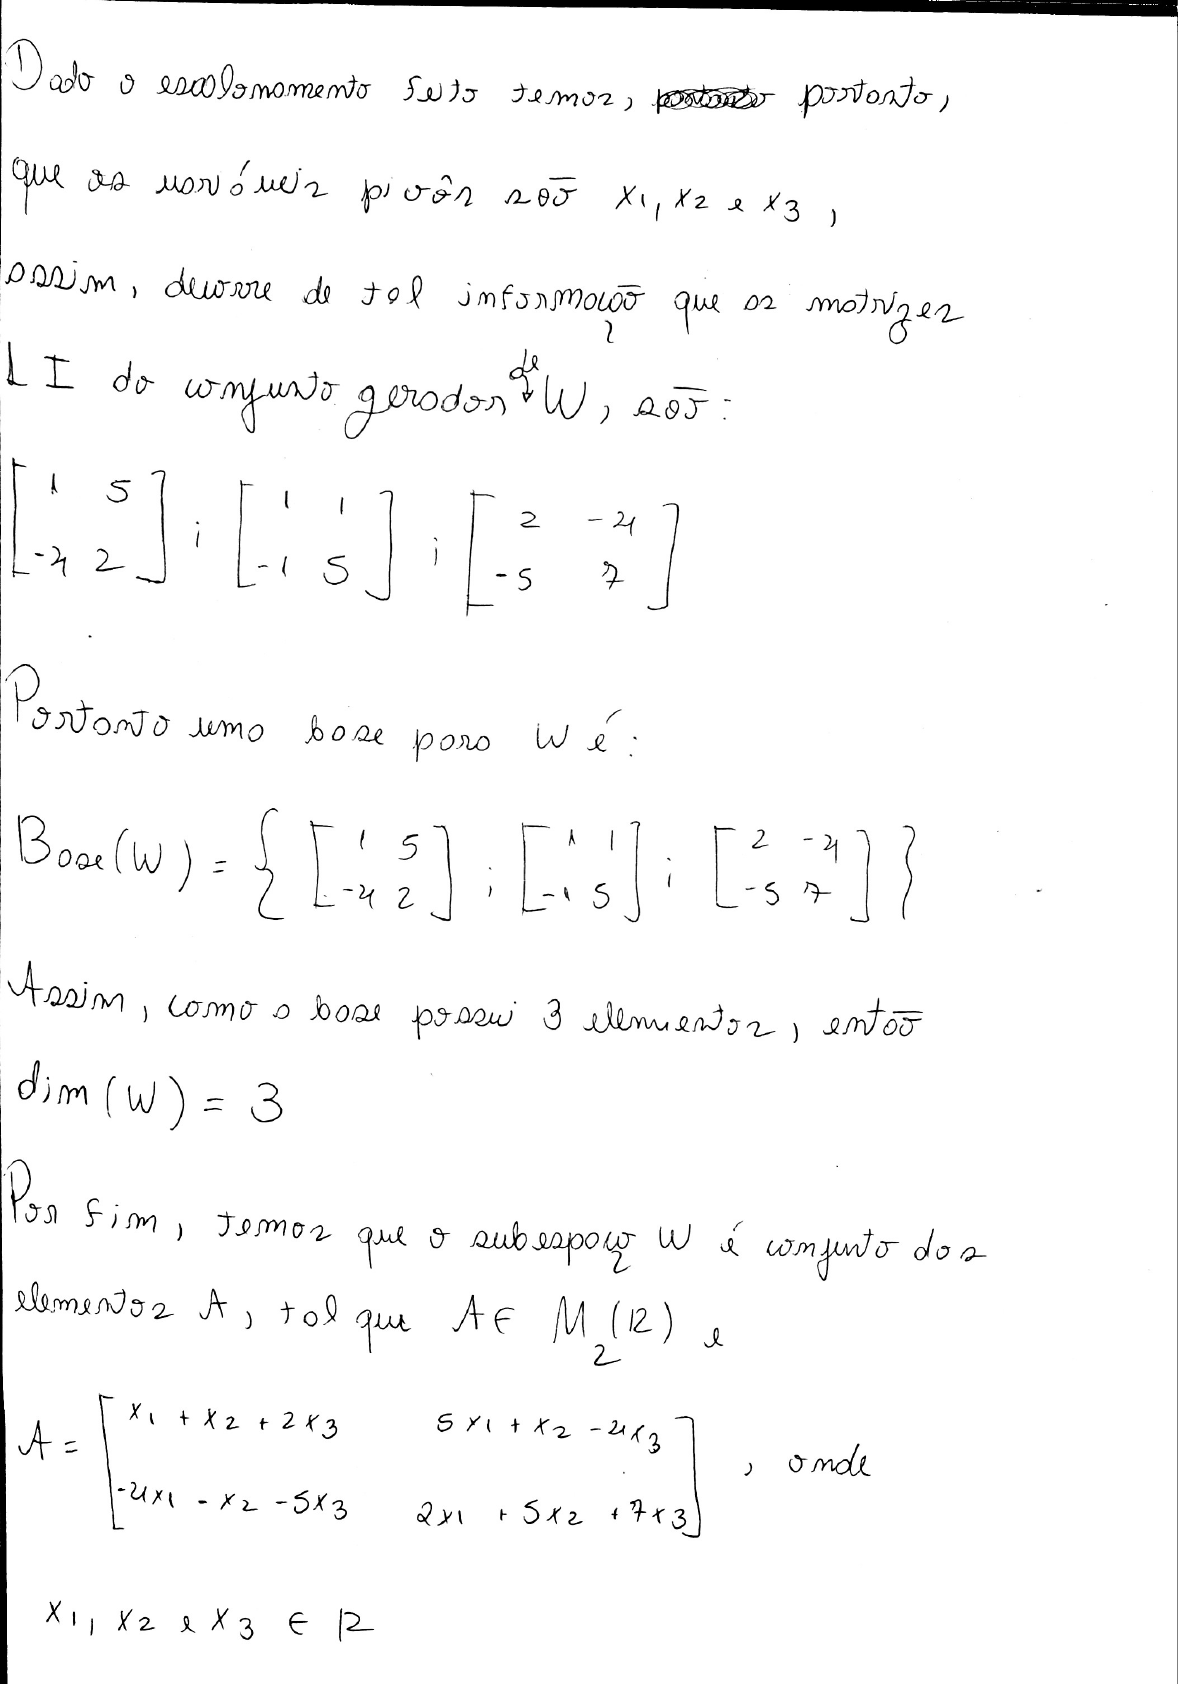 Dado o escalonamento feito temos, portanto,
que as variáveis pivôs são x1, x2 e x3,
assim, decorre de tal informação que as matrizes
LI do conjunto gerador de W, são:
[1 5; -4 2] ; [1 1; -1 5] ; [2 -4; -5 7]
Portanto uma base para W é:
Base(W) = { [1 5; -4 2] ; [1 1; -1 5] ; [2 -4; -5 7] }
Assim, como a base possui 3 elementos, então
dim(W) = 3
Por fim, temos que o subespaço W é conjunto dos
elementos A, tal que A ∈ M2(R) e
A = [x1 + x2 + 2x3 5x1 + x2 - 4x3; -4x1 - x2 - 5x3 2x1 + 5x2 + 7x3], onde
x1, x2 e x3 ∈ R